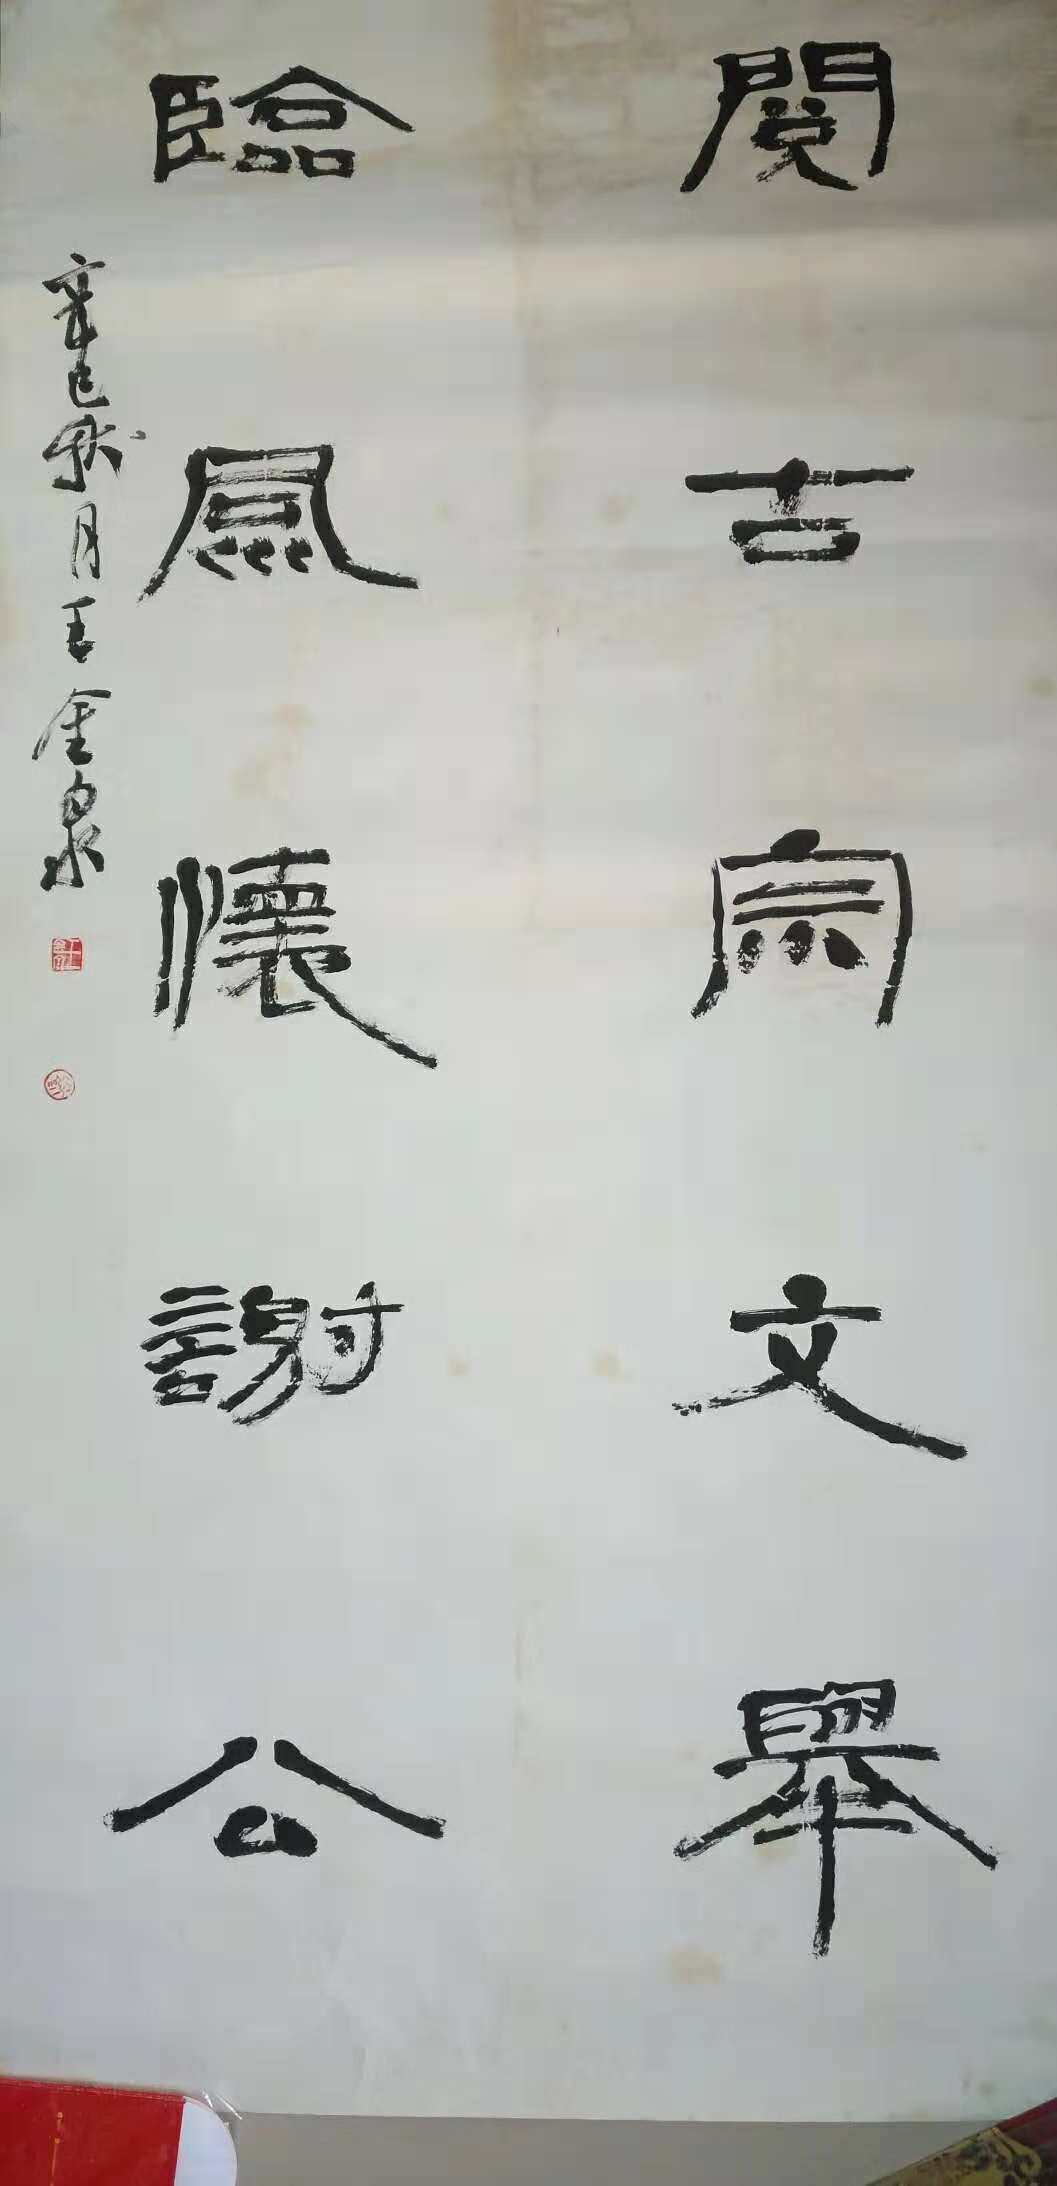 閱古宗文舉
臨風懷謝公
辛巳秋月王金泉